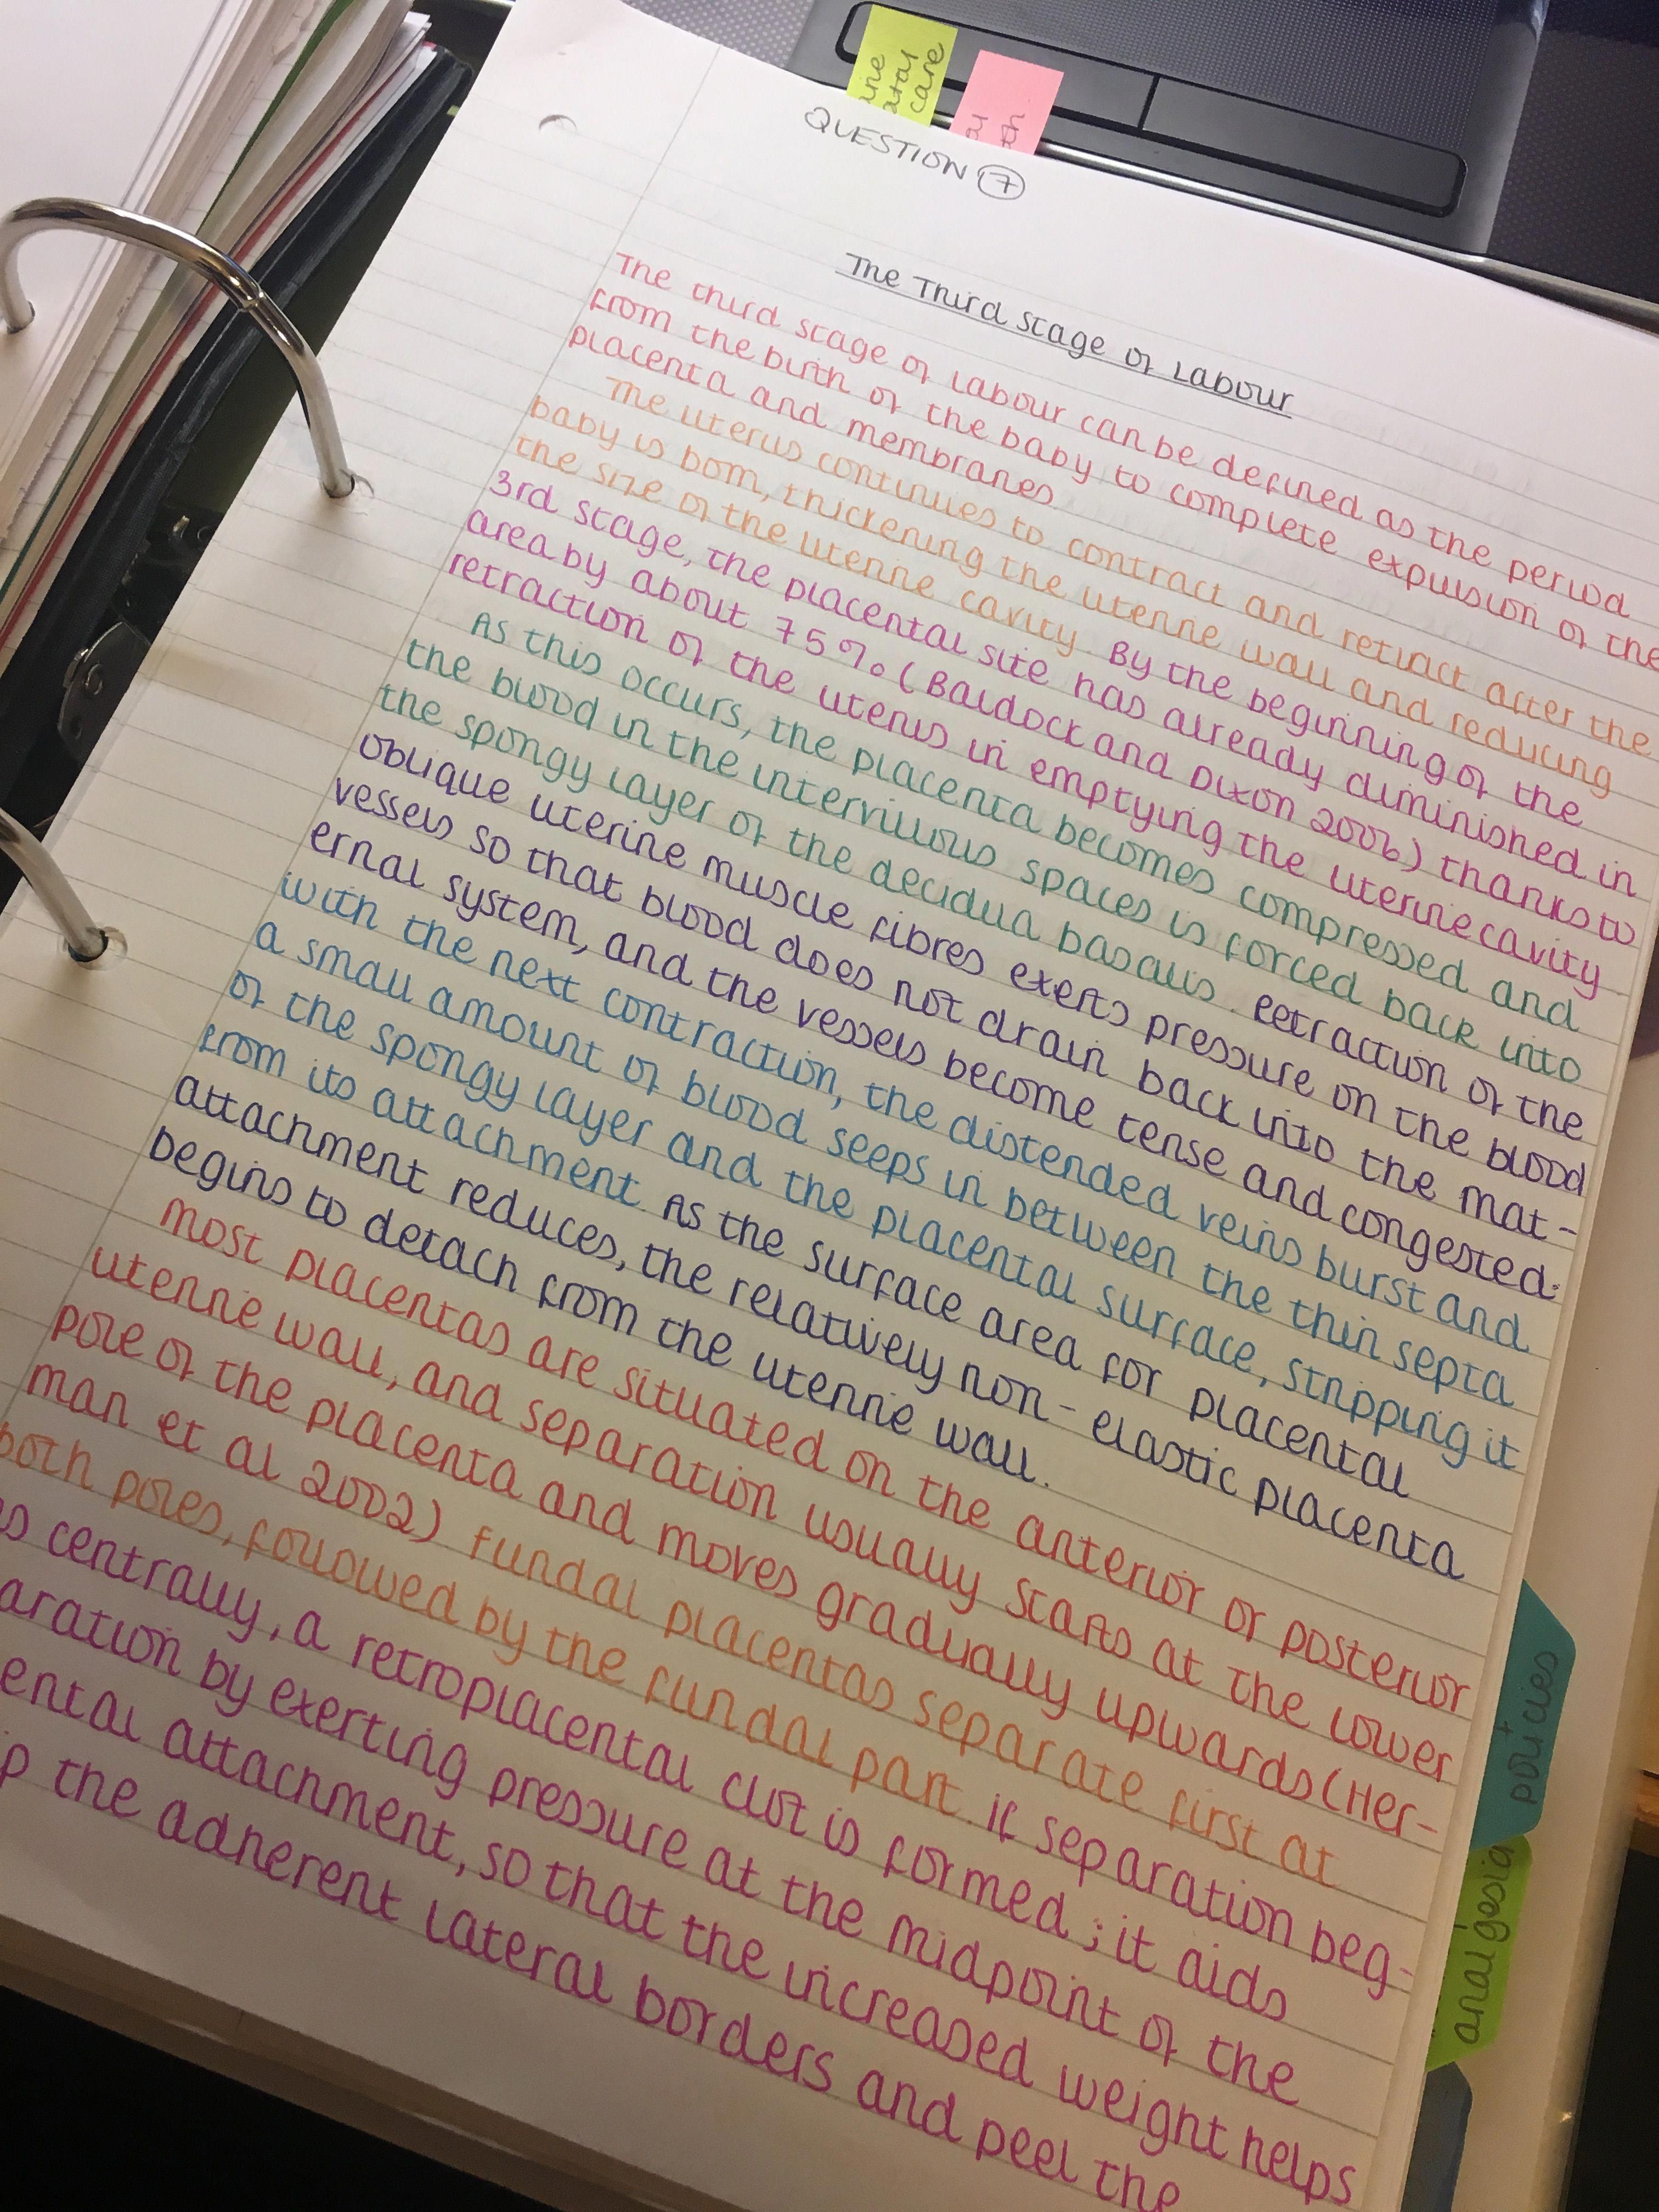 care
QUESTION 7
The Third Stage of Labour
The third stage of labour can be defined as the period
from the birth of the baby to complete expulsion of the
placenta and membranes.
The uterus continues to contract and retract after the
baby is born, thickening the uterine wall and reducing
the size of the uterine cavity. By the beginning of the
3rd stage, the placental site has already diminished in
area by about 75% (Baldock and Dixon 2006) thanks to
retraction of the uterus in emptying the uterine cavity.
As this occurs, the placenta becomes compressed and
the blood in the intervillous spaces is forced back into
the spongy layer of the decidua basalis. Retraction of the
oblique uterine muscle fibres exerts pressure on the blood
vessels so that blood does not drain back into the mat-
ernal system, and the vessels become tense and congested.
With the next contraction, the distended veins burst and
a small amount of blood seeps in between the thin septa
of the spongy layer and the placental surface, stripping it
from its attachment. As the surface area for placental
attachment reduces, the relatively non-elastic placenta
begins to detach from the uterine wall.
Most placentas are situated on the anterior or posterior
uterine wall, and separation usually starts at the lower
pole of the placenta and moves gradually upwards (Her-
man et al 2002) Fundal placentas separate first at
both poles, followed by the fundal part. If separation beg-
s centrally, a retroplacental clot is formed; it aids
aration by exerting pressure at the midpoint of the
ental attachment, so that the increased weight helps
p the adherent lateral borders and peel the
policies
analgesia